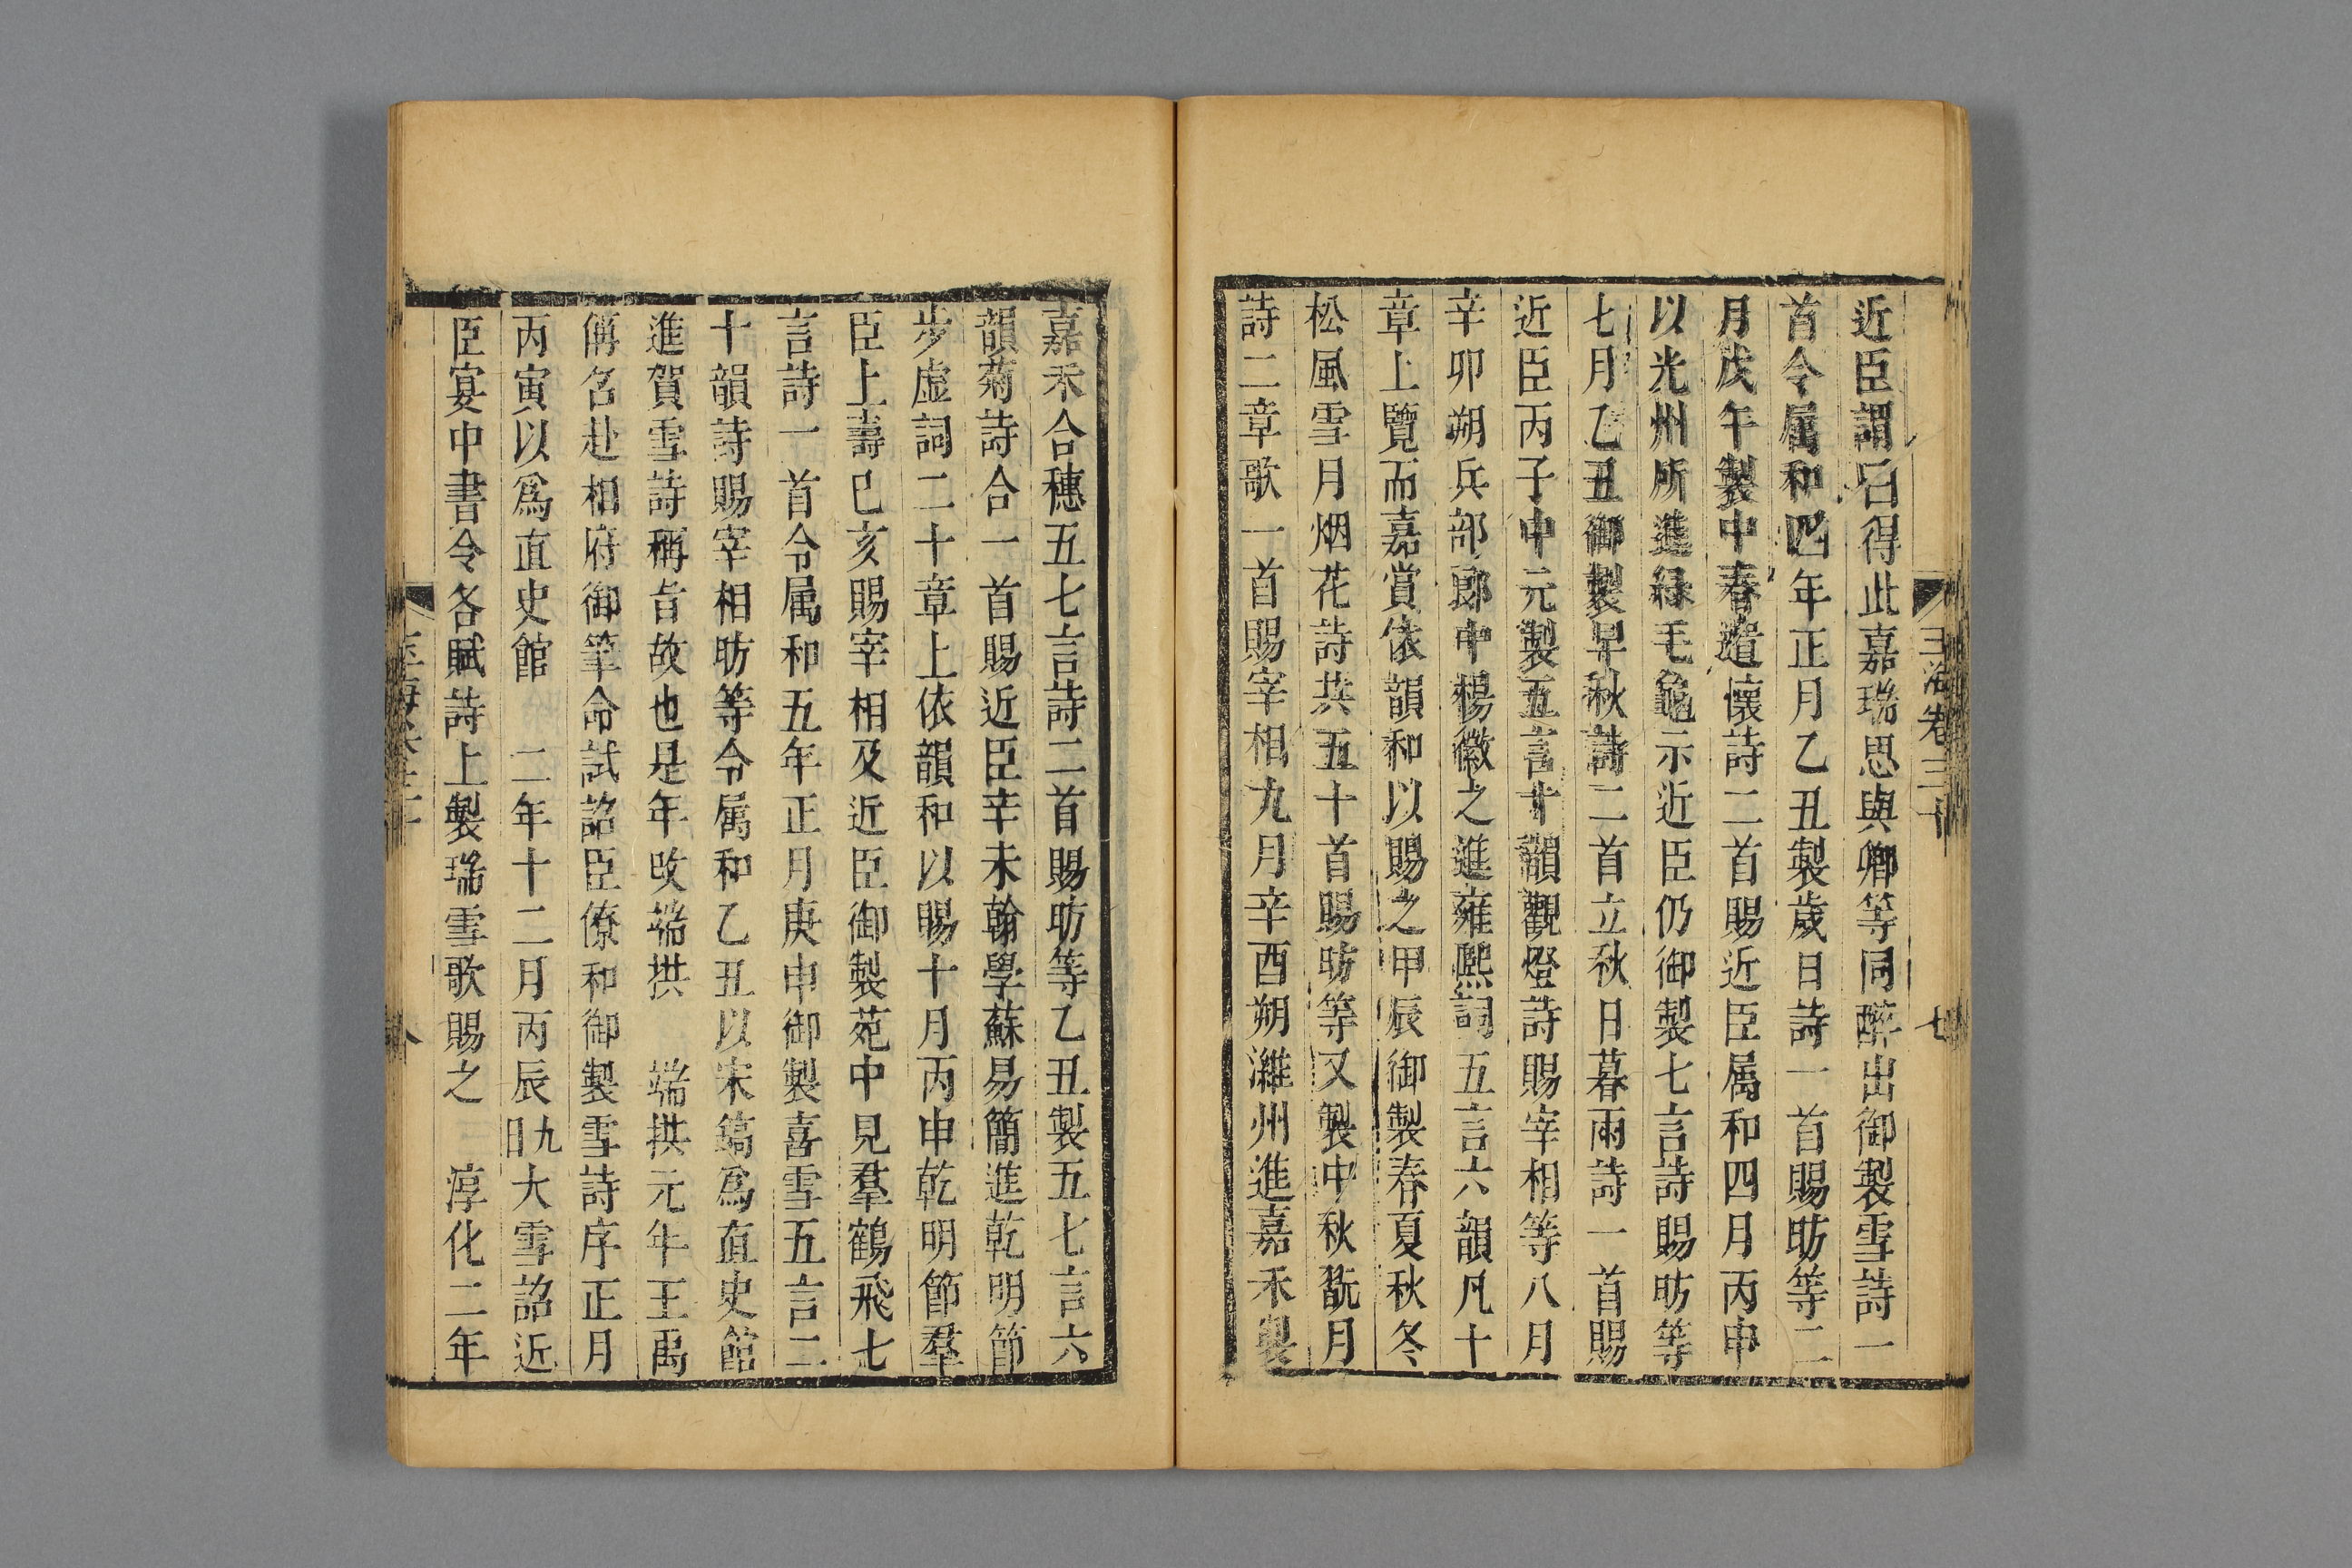 近臣謂曰得此嘉瑞思與卿等同醉出御製雪詩一
首令属和四年正月乙丑製歲日詩一首賜昉等二
月戊午製中春遣懷詩二首賜近臣属和四月丙申
以光州所進緑毛龜示近臣仍御製七言詩賜昉等
七月乙丑御製早秋詩二首立秋日暮雨詩一首賜
近臣丙子中元製五言十韻觀燈詩賜宰相等八月
辛卯朔兵部郎中楊徽之進雍熙詞五言六韻凡十
章上覽而嘉賞依韻和以賜之甲辰御製春夏秋冬
松風雪月烟花詩共五十首賜昉等又製中秋翫月
詩二章歌一首賜宰相九月辛酉朔濰州進嘉禾製
玉海卷三十
七
嘉禾合穗五七言詩二首賜昉等乙丑製五七言六
韻菊詩合一首賜近臣辛未翰學蘇易簡進乾明節
步虚詞二十章上依韻和以賜十月丙申乾明節羣
臣上壽己亥賜宰相及近臣御製苑中見羣鶴飛七
言詩一首令属和五年正月庚申御製喜雪五言二
十韻詩賜宰相昉等令属和乙丑以宋鎬爲直史館
進賀雪詩稱旨故也是年改端拱 端拱元年王禹
偁名赴相府御筆命試詔臣僚和御製雪詩序正月
丙寅以爲直史館 二年十二月丙辰九日大雪詔近
臣宴中書令各賦詩上製瑞雪歌賜之 淳化二年
八